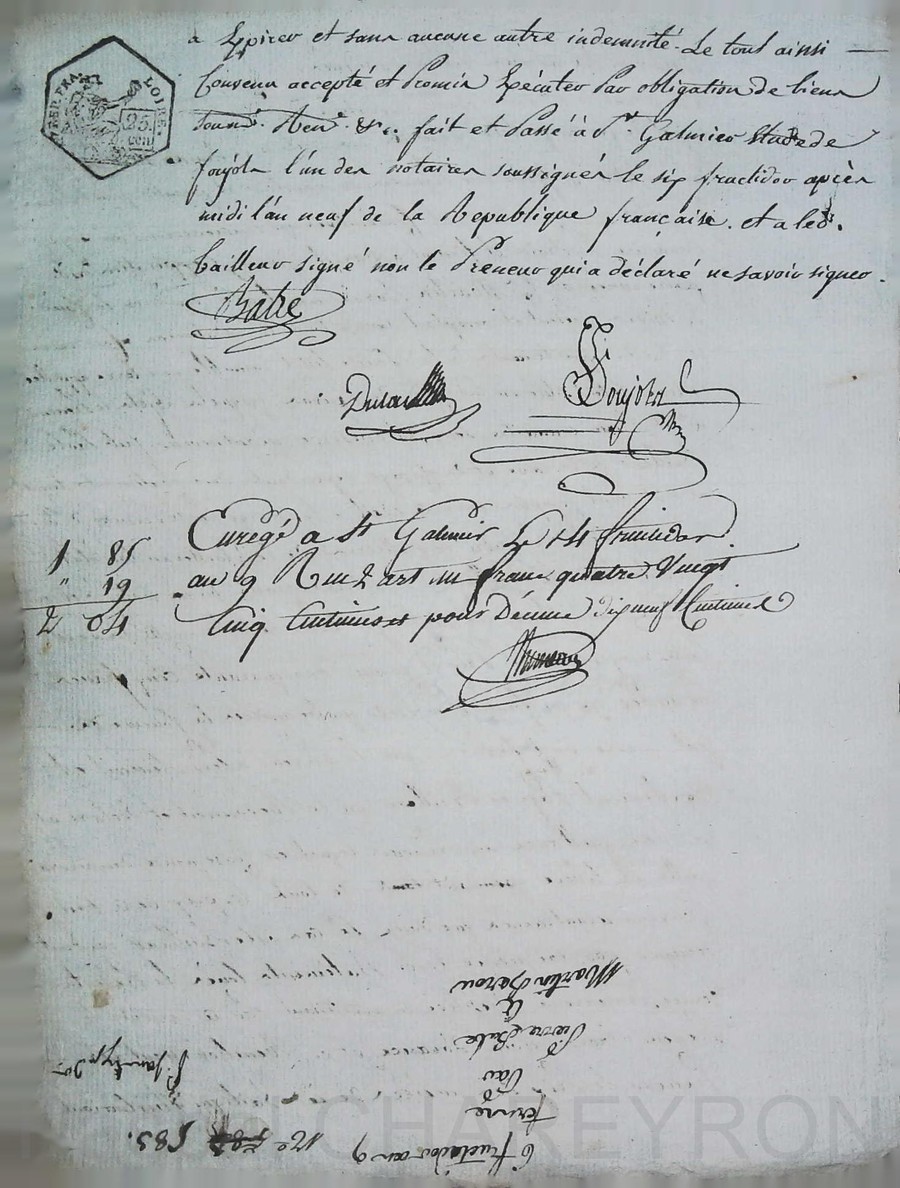 a Expirer et sans aucune autre indemnité. Le tout ainsi
Convenu accepté et Promis Exécuter Par obligation de biens
soum.s Ren.n &c. fait et Passé à S.t Galmier Etude de
foujols l'un des notaires soussignés le six fructidor après
midi l'an neuf de la Republique française. et a led.
bailleur signé non le Preneur qui a déclaré ne savoir signer.
Batie
foujols
Enregé a St Galmier Le 14 fructidor
1 85
an 9 Recu un franc quatre Vingt
" 19
Cinq Centimes et pour Décime dix neuf Centimes
2 04
LOIRE
25 cen
6 fructidor an 9 No 583.
ferme
Par
Pierre
à
Martin
CHAREYRON